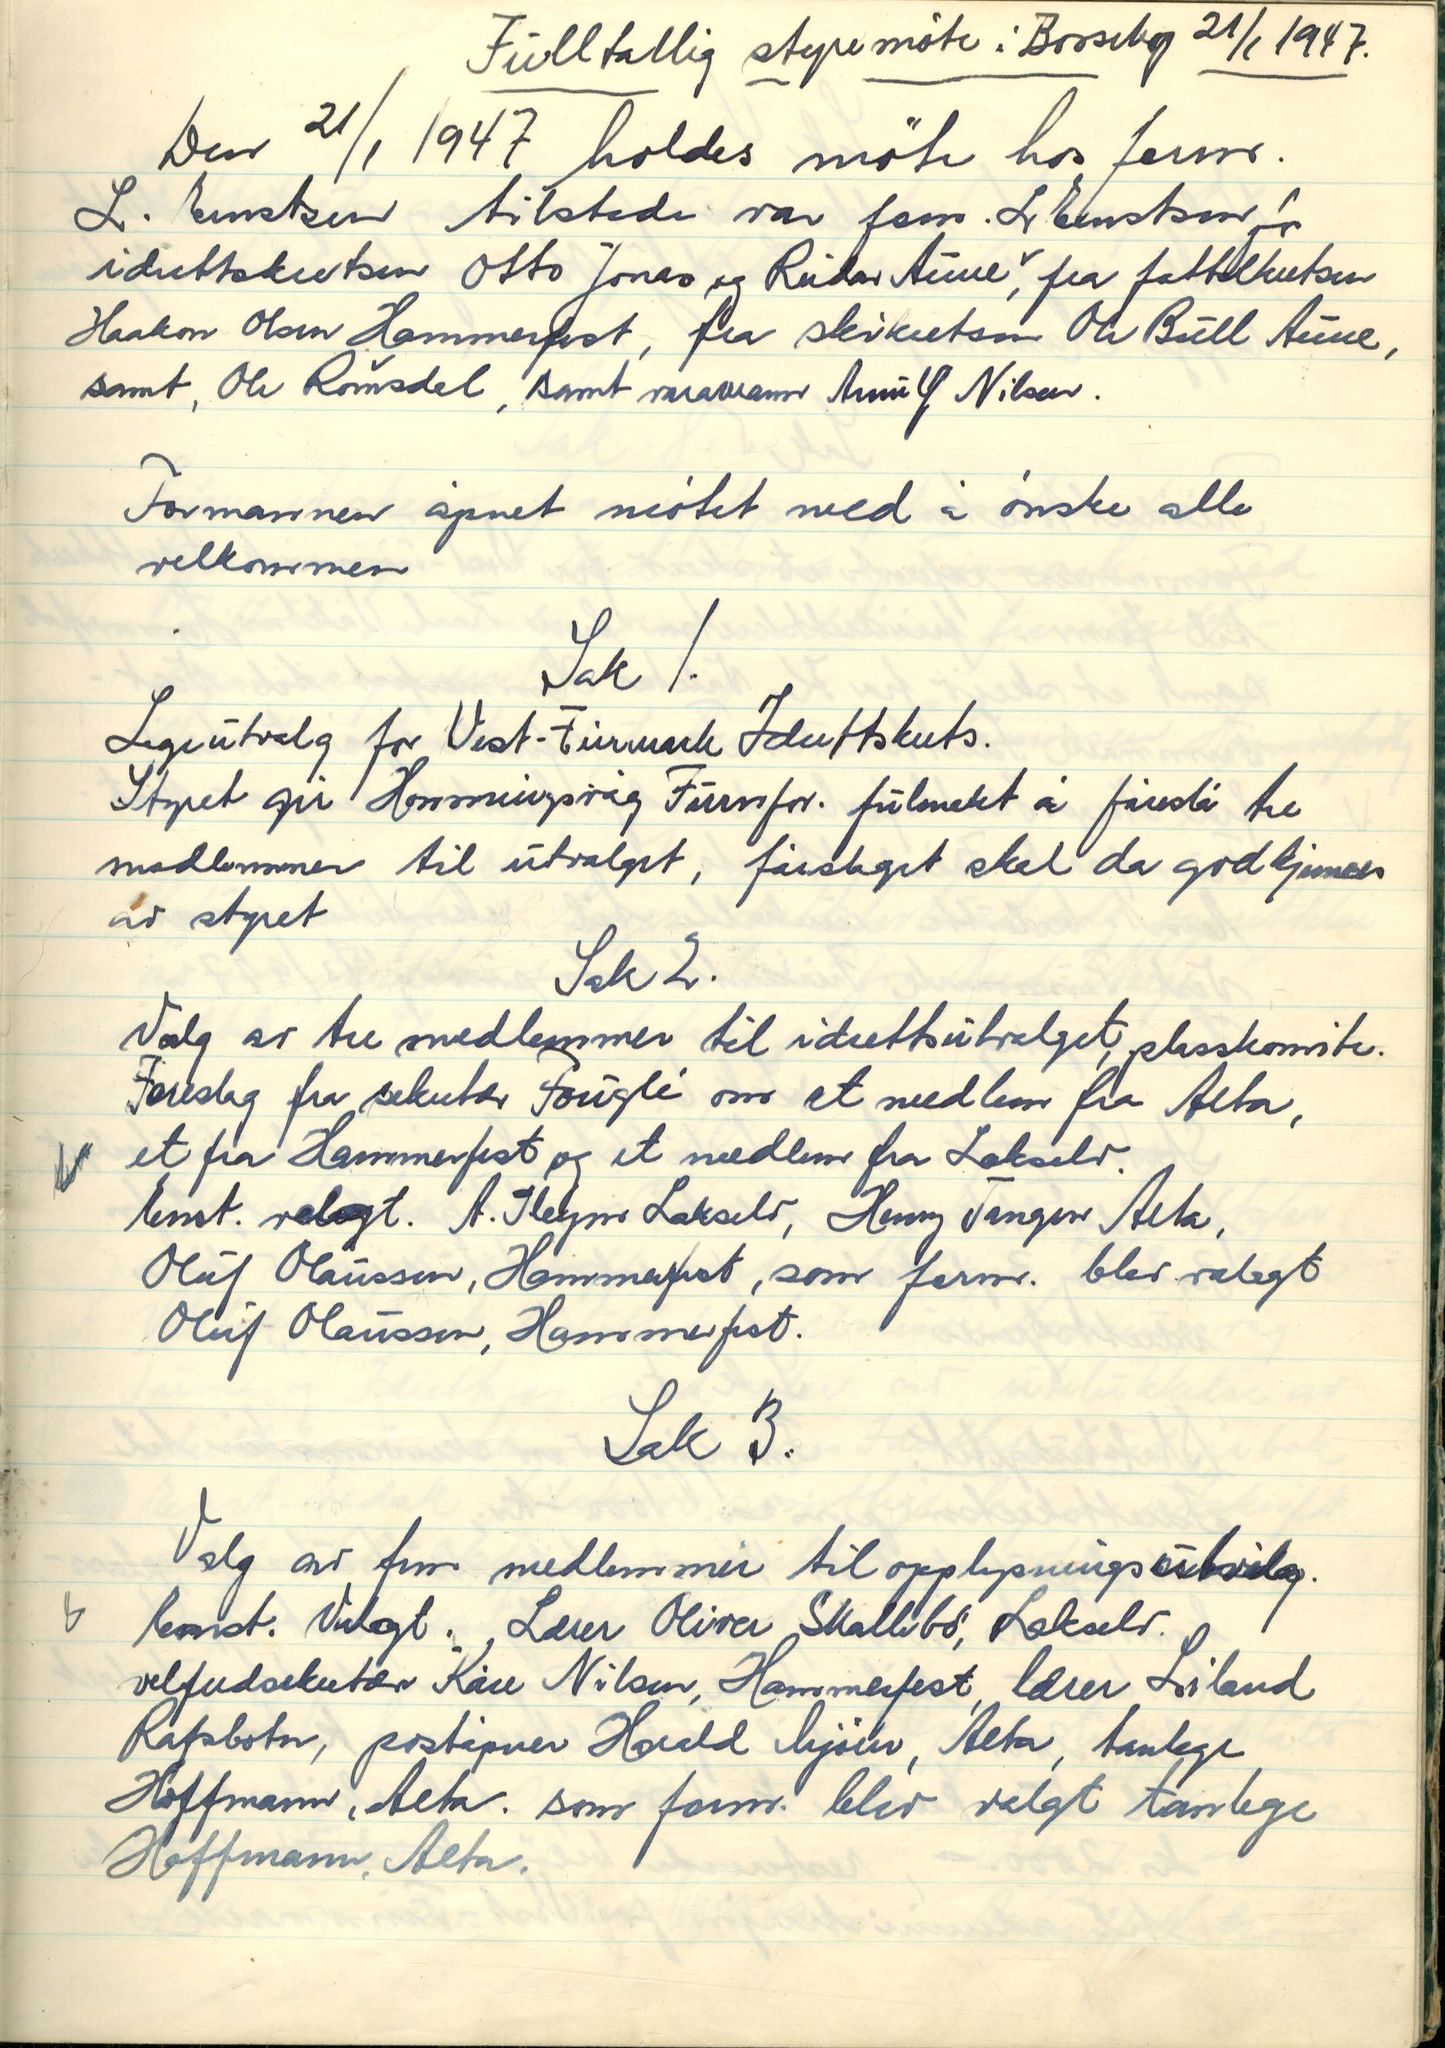 Fulltallig styremöte i Bossekop 21/1 1947.
Den 21/1 1947 holdes möte hos form.
L. Ernstsen tilstede var form. L Ernstsen, fr
idrettskretsen Otto Jonas og Reidar Aune, fra fotballkretsen
Haakon Olsen Hammerfest, fra skikretsen Ole Bull Aune,
samt, Ole Romsdal, samt varamann Arnulf Nilsen.
Formannen åpnet mötet med å önske alle
velkommen
Sak 1.
Legeutvalg for Vest-Finnmark Idrettskrets.
Styret gir Honningsvåg Turnfor. fulmakt å föreslå tre
medlemmer til utvalget, förslaget skal da godkjennes
av styret
Sak 2.
Valg av tre medlemmer til idrettsutvalget, plasskomite.
Foreslag fra sekretær Fouglé om et medlem fra Alta,
et fra Hammerfest og et medlem fra Lakselv.
Enst. valgt. A. Lakselv, Henry Tangen Alta,
Oluf Olaussen, Hammerfest, som form. blev valgt
Oluf Olaussen, Hammerfest.
Sak 3.
Valg av fem medlemmer til opplysningsutvalg.
Enst. Valgt. Lærer Oliver Skallebö, Lakselv.
velferdsekretær Kåre Nilsen, Hammerfest, lærer Leiland
Rafsbotn, poståpner Harald Mjöen, Alta, tanlege
Hoffmann, Alta. som form. blev valgt tanlege
Hoffmann, Alta.